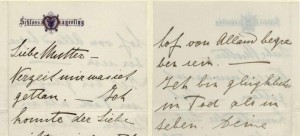 Schloss
Mayerling
Liebe Mutter –
Verzeiht mir was ich
gethan. – Ich
konnte der Liebe
hof von Alland begra
ben sein. –
Ich bin glücklicher
im Tod als im
Leben Deine